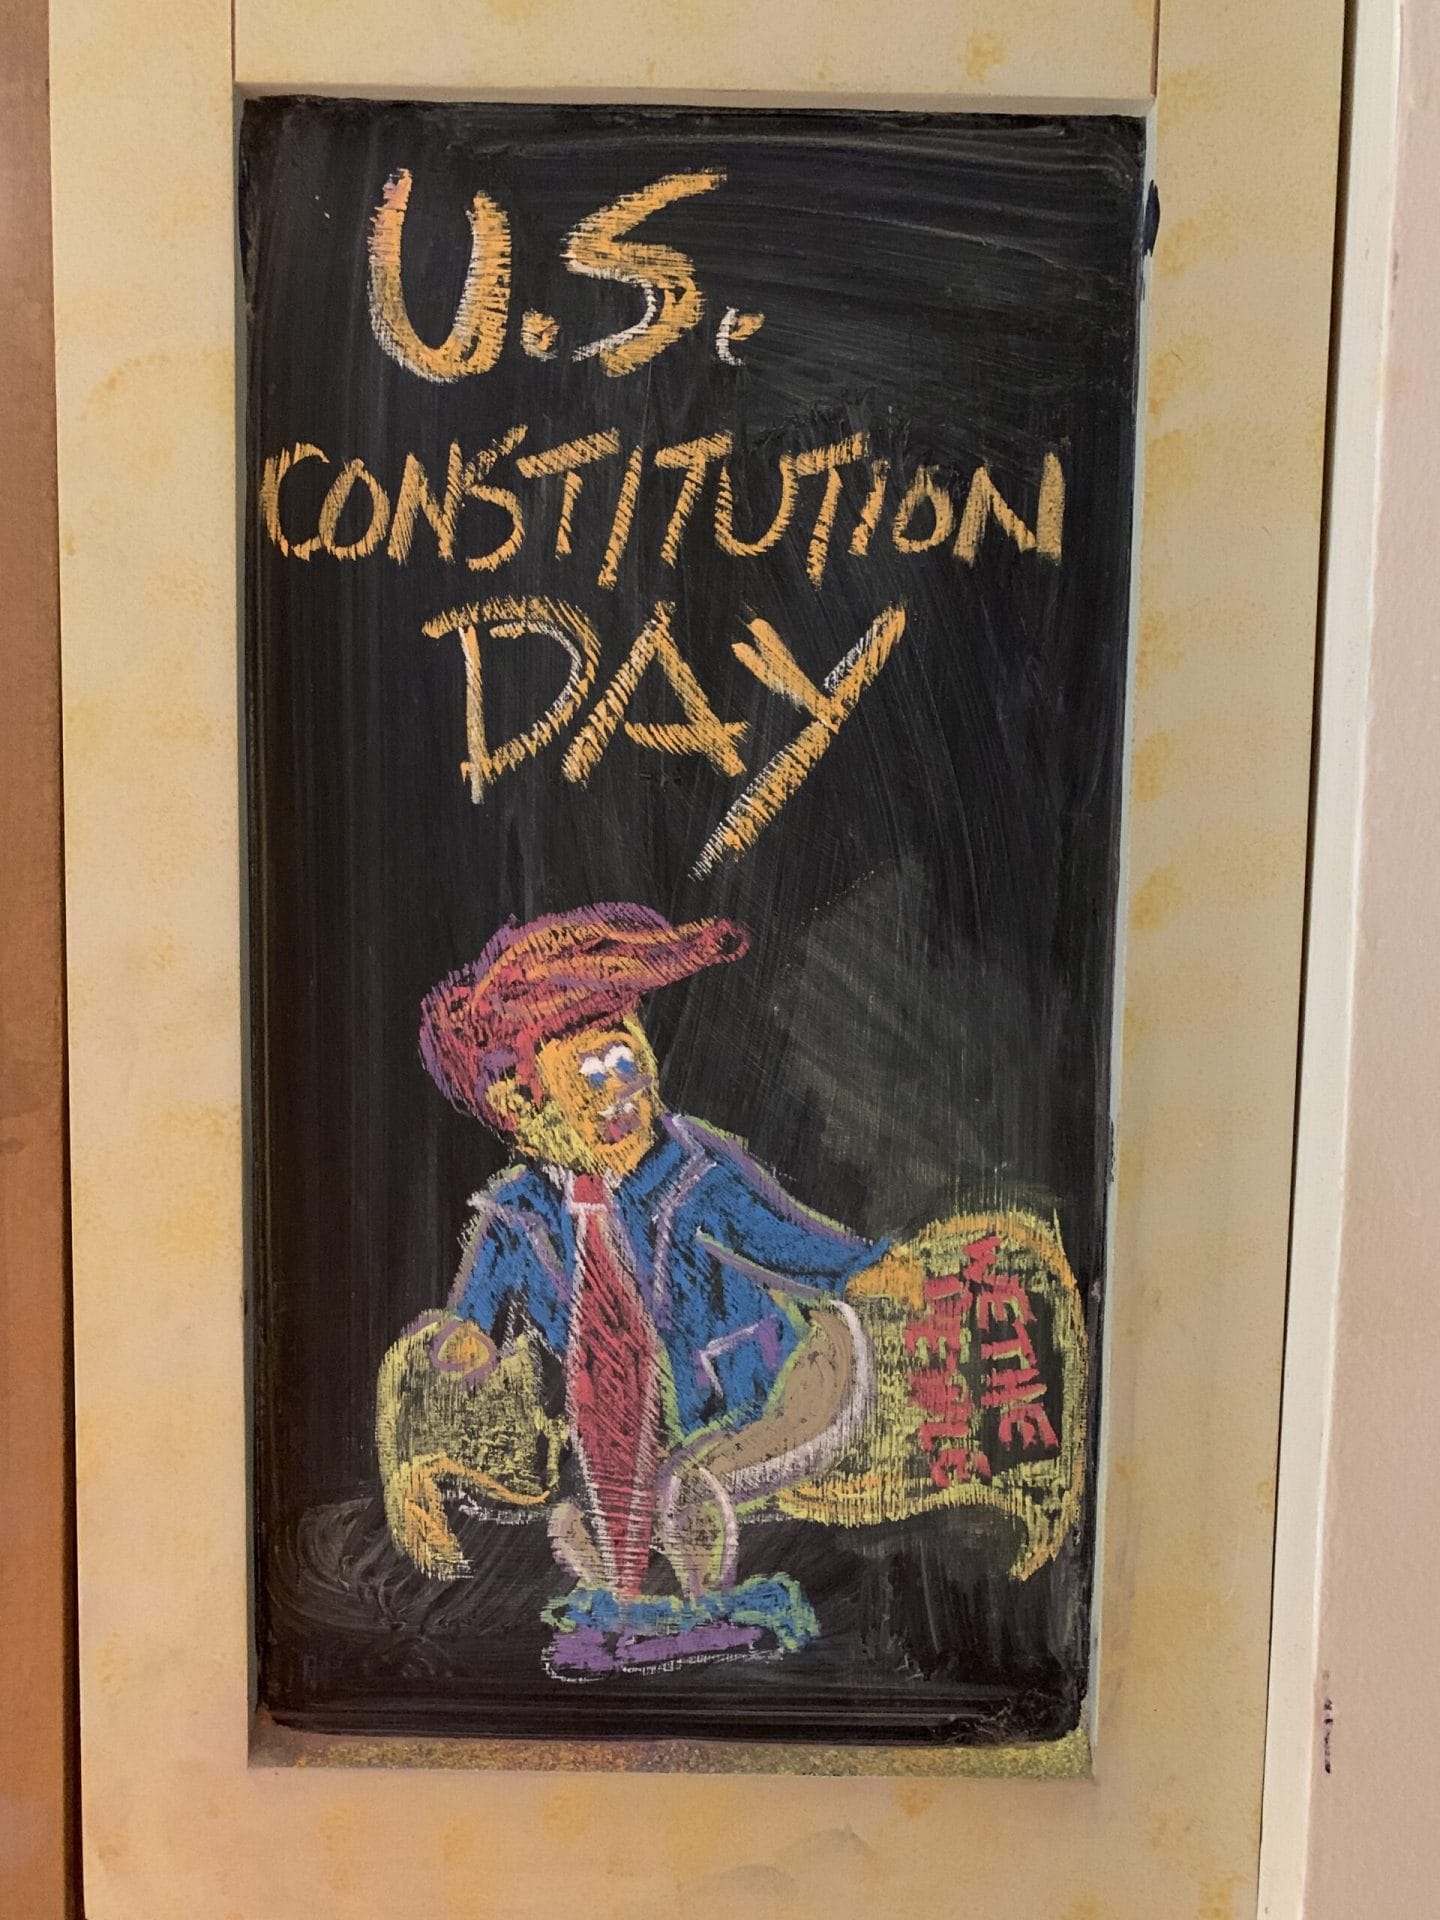 U.S.
CONSTITUTION
DAY
WE THE
PEOPLE